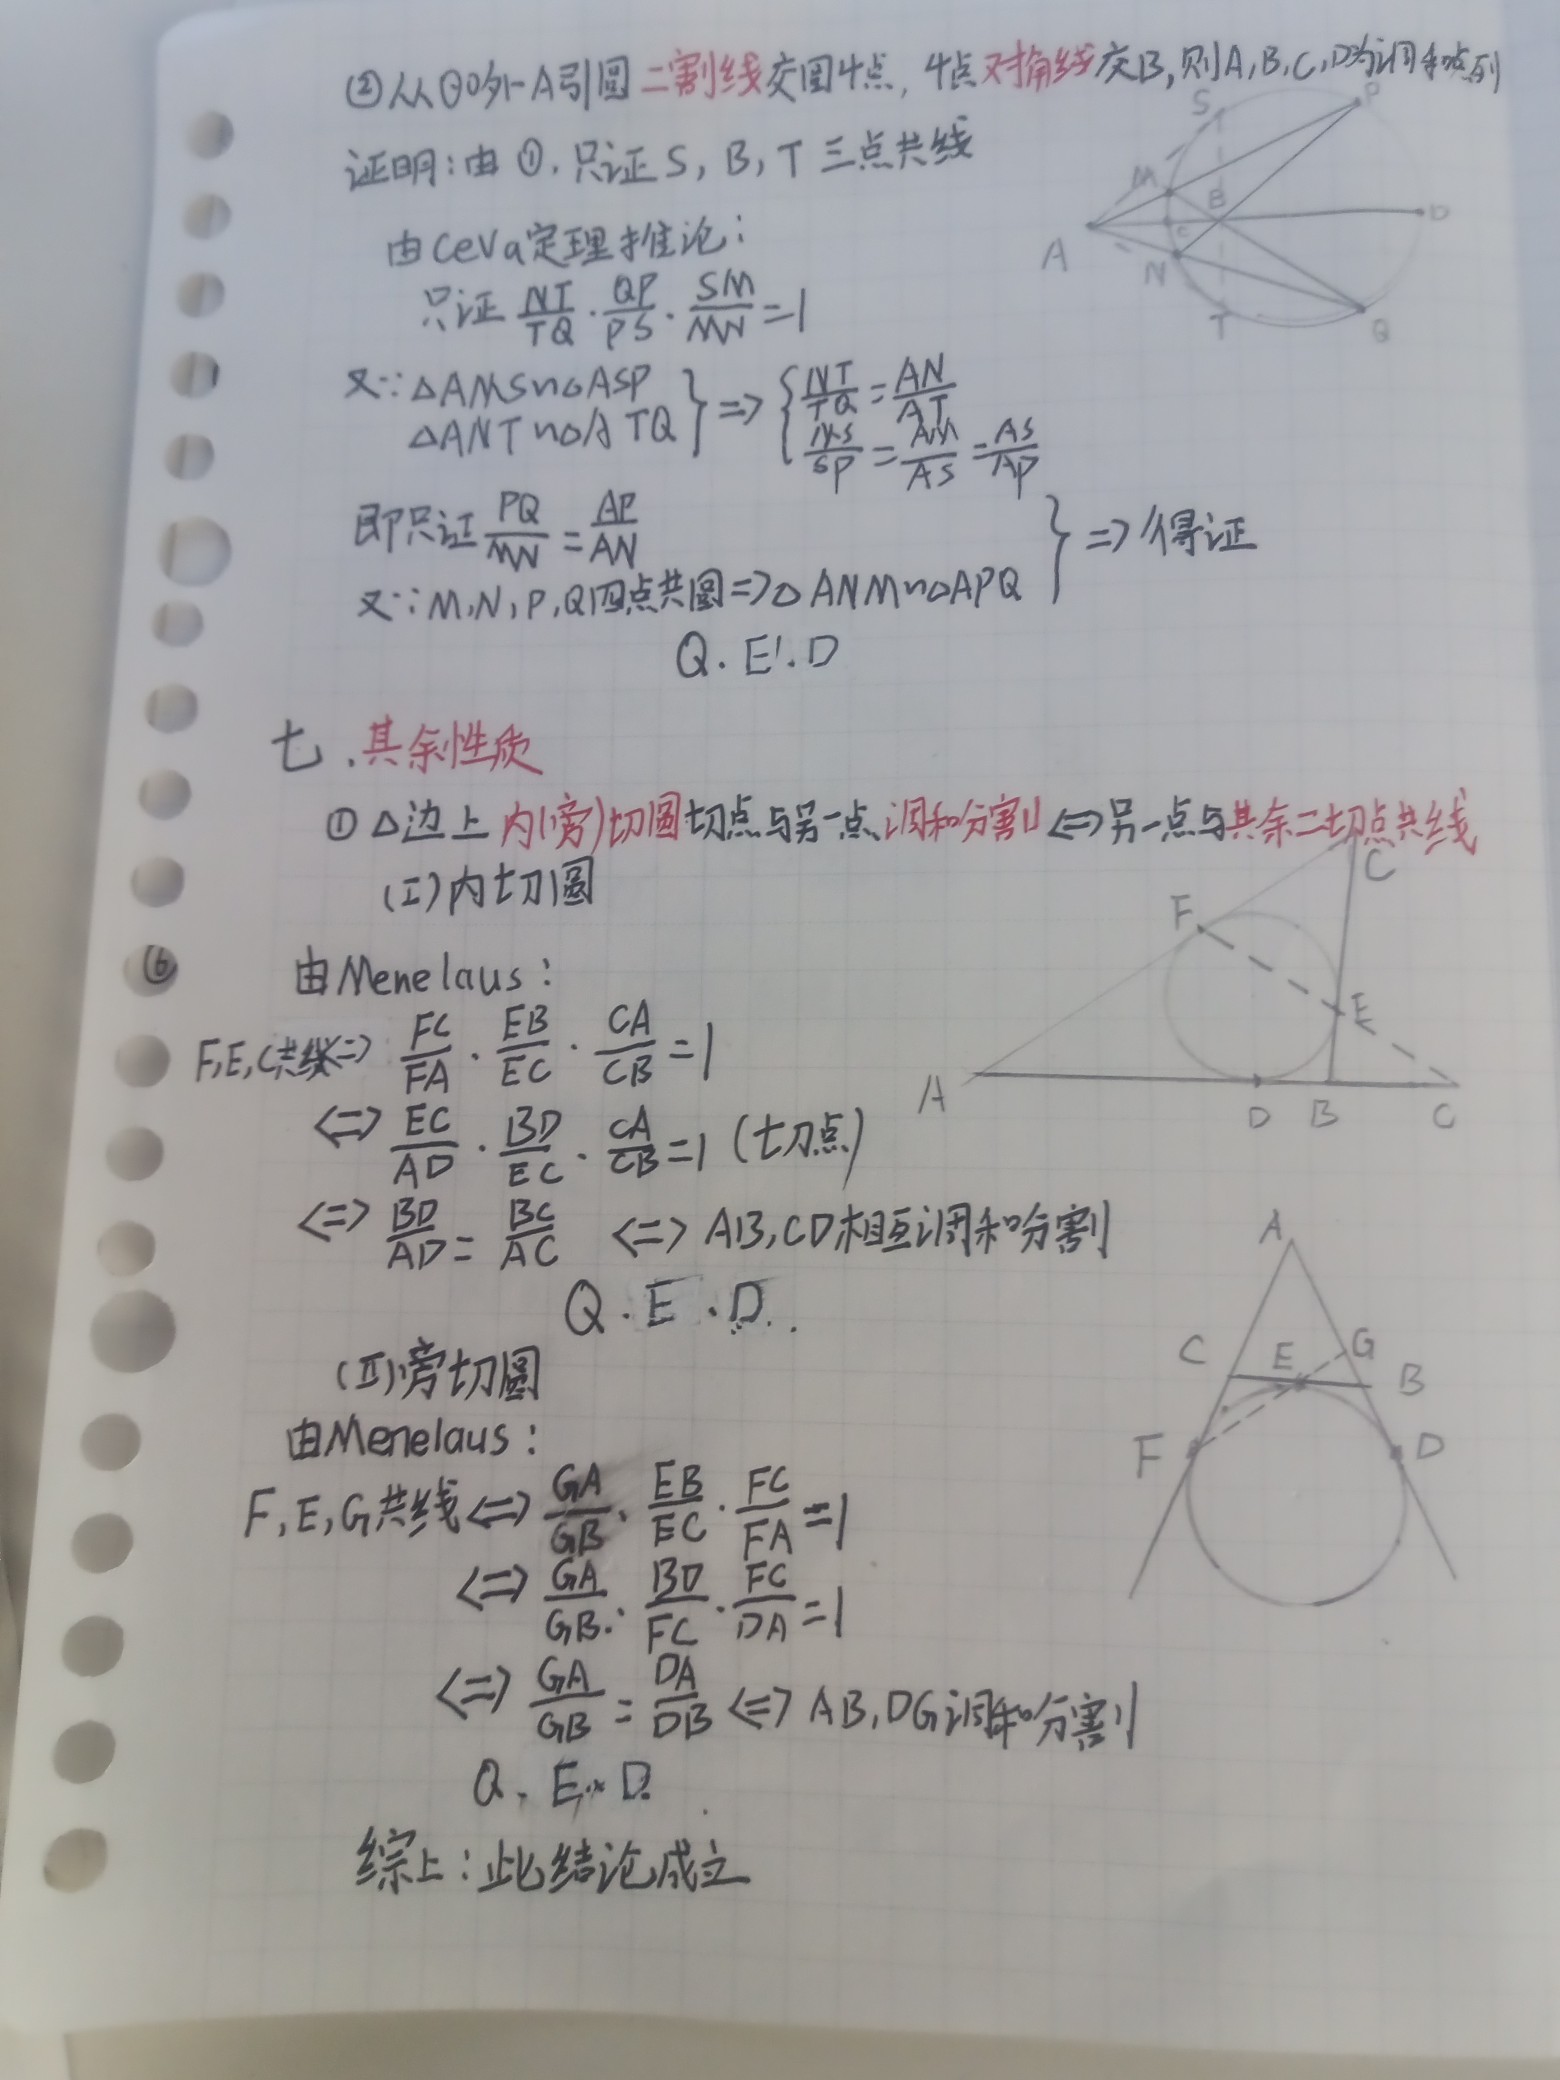 ②从⊙外一A引圆二割线交圆4点,4点对角线交B,则A,B,C,D为调和点列
证明:由①,只证S,B,T三点共线
由Ceva定理推论:
只证 NT/TQ · QP/PS · SM/MN =1
又∵△AMS∽△ASP
△ANT∽△ATQ } => { NT/TQ = AN/AT
MS/SP = AM/AS = AS/AP
即只证 PQ/MN = AP/AN
又∵M,N,P,Q四点共圆=>△ANM∽△APQ } => 得证
Q.E.D
S
P
M
B
A
C
D
N
T
Q
七.其余性质
①△边上内(旁)切圆切点与另一点调和分割<=>另一点与其余二切点共线
(I)内切圆
⑥
由Menelaus:
F,E,C共线<=> FC/FA · EB/EC · CA/CB =1
<=> EC/AD · BD/EC · CA/CB =1 (切点)
<=> BD/AD = BC/AC <=> AB,CD相互调和分割
Q.E.D.
C
F
E
A
D
B
C
(II)旁切圆
由Menelaus:
F,E,G共线<=> GA/GB · EB/EC · FC/FA =1
<=> GA/GB · BD/FC · FC/DA =1
<=> GA/GB = DA/DB <=> AB,DG调和分割
Q.E.D.
A
C
E
G
B
F
D
综上:此结论成立